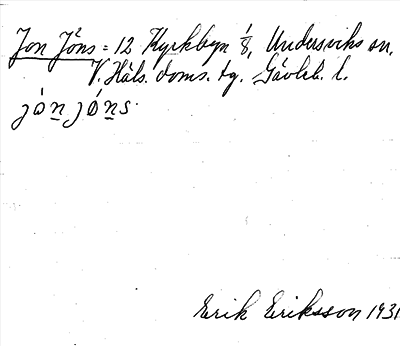 Jon Jöns = 12 Kyrkbyn 1/8, Undersviks sn,
V. Häls. doms. tg. Gävleb. l.
jòn jǿns.
Erik Eriksson 1931